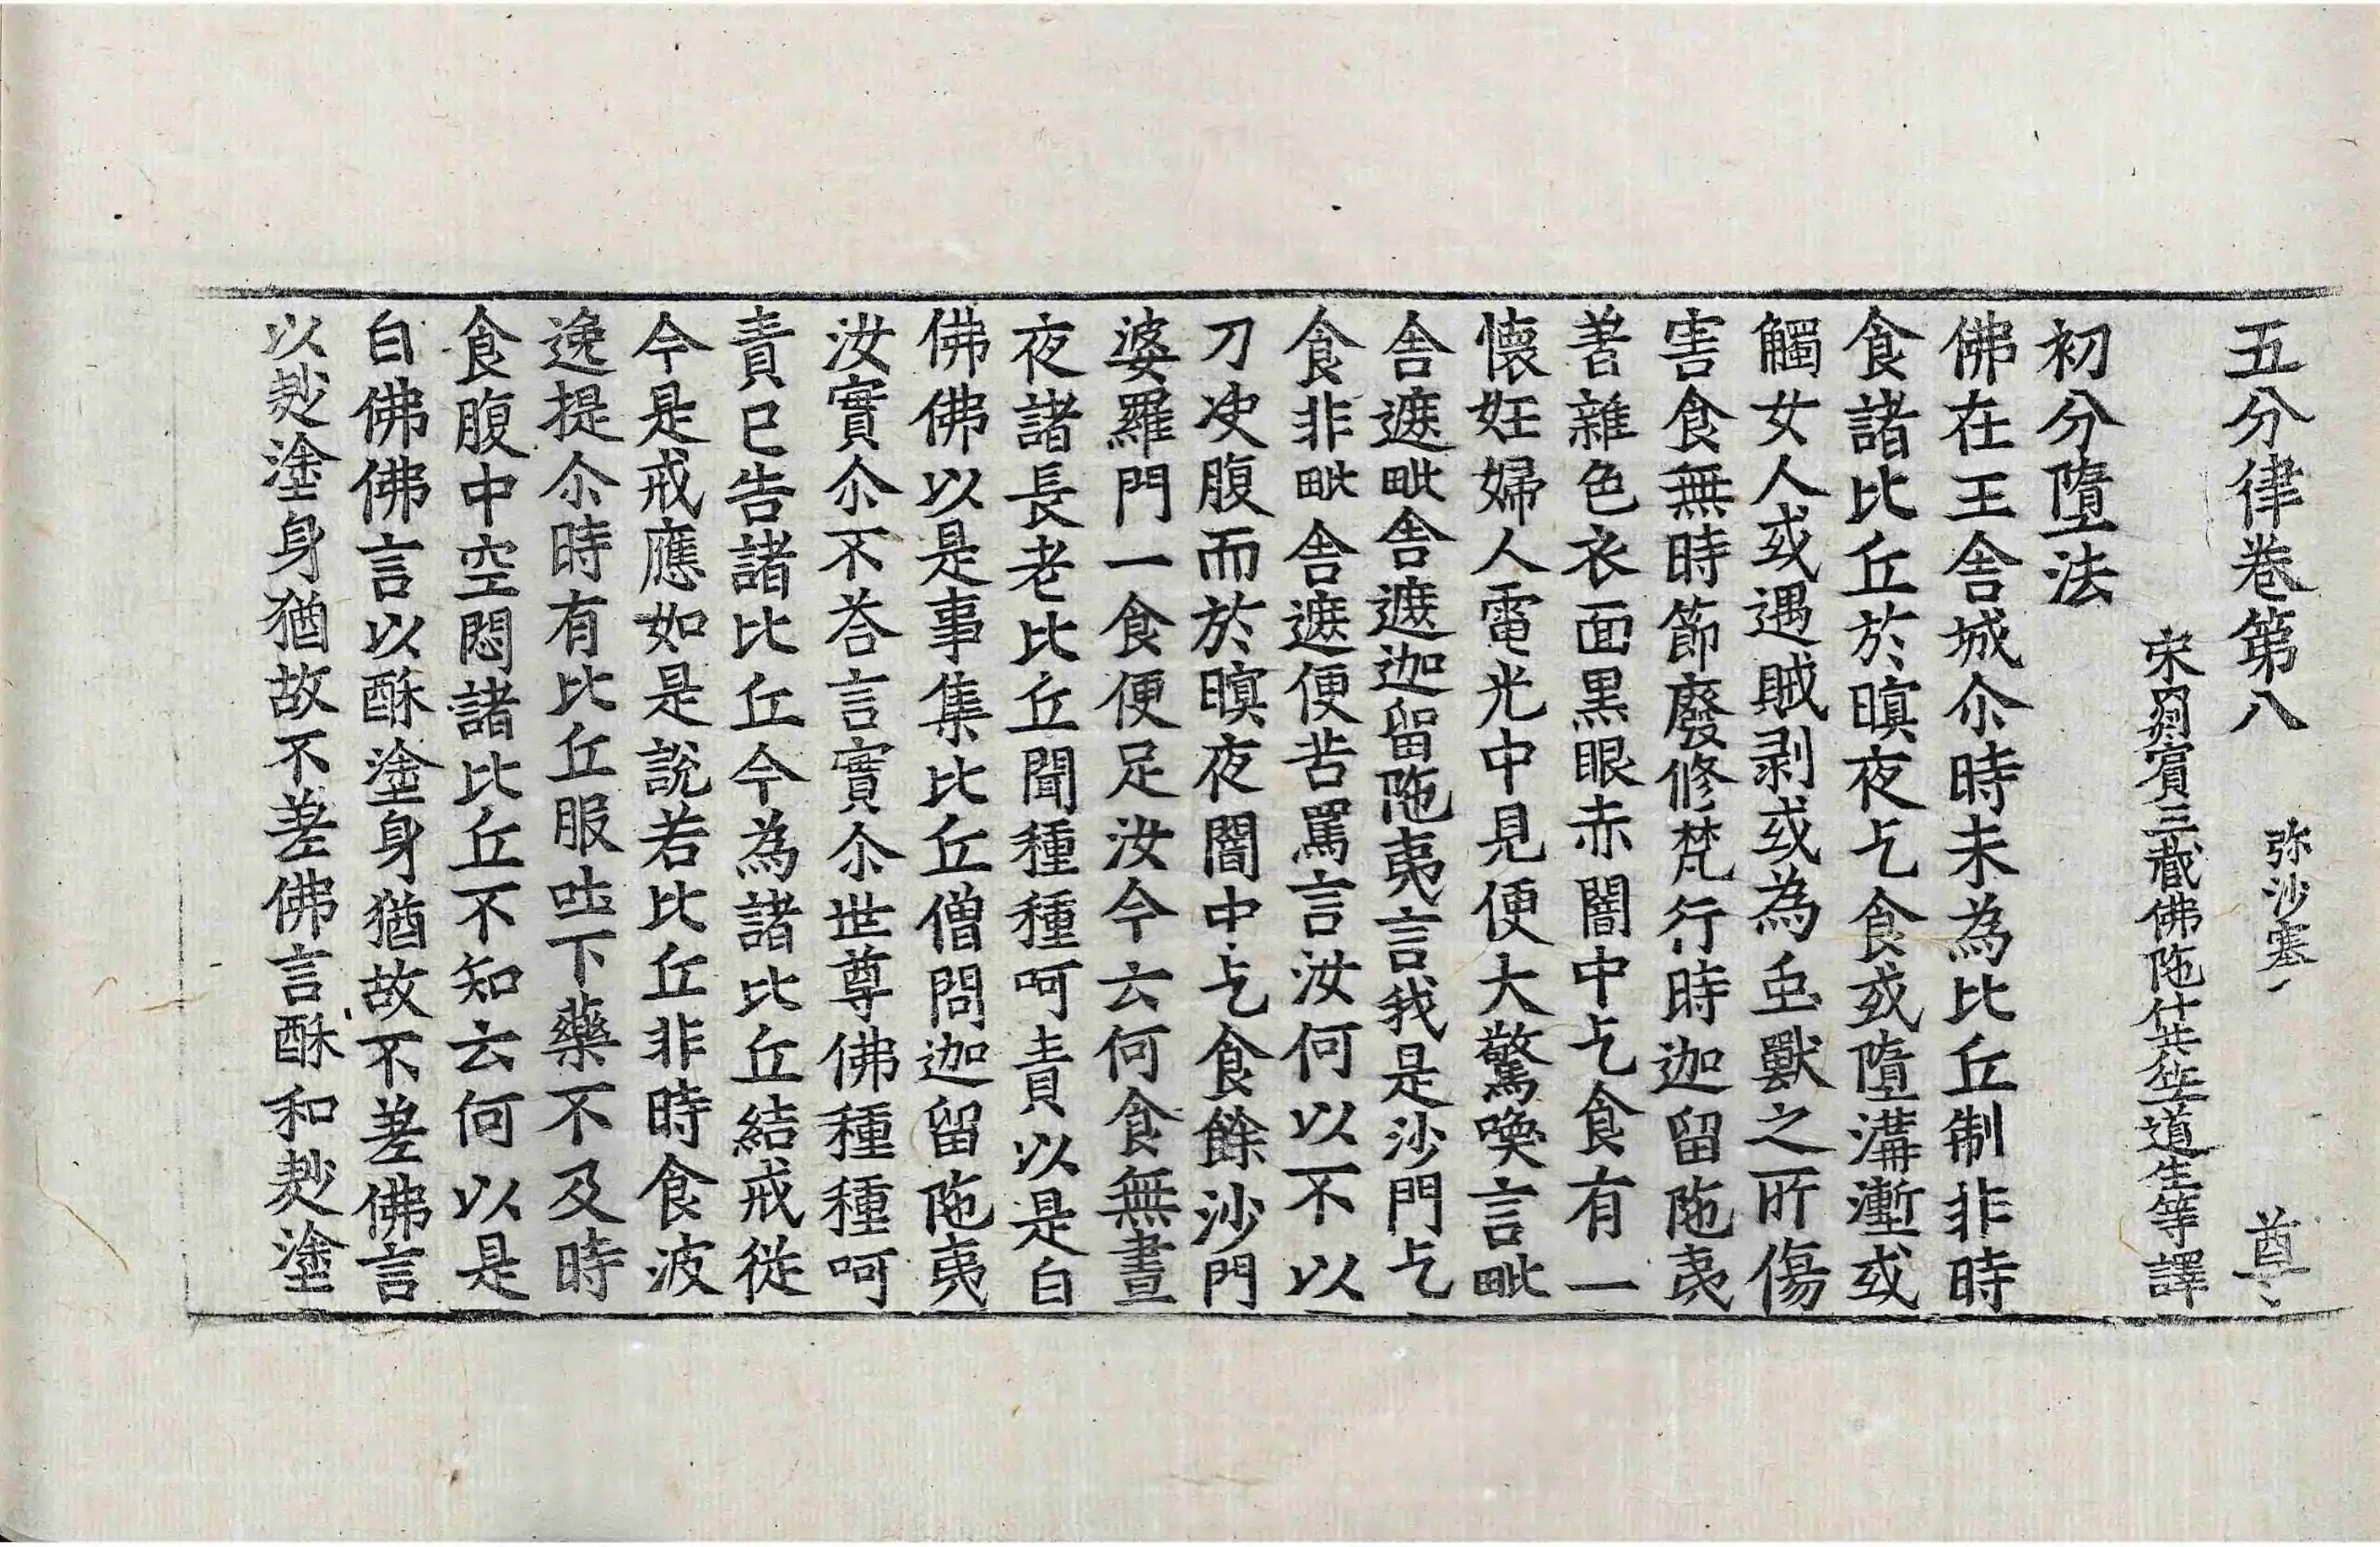 五分律卷第八 弥沙塞 尊
宋罽賓三藏佛陁什共竺道生等譯
初分墮法
佛在王舍城尒時未為比丘制非時
食諸比丘於暝夜乞食或墮溝壍或
觸女人或遇賊剥或為虫獸之所傷
害食無時節廢修梵行時迦留陁夷
著雜色衣面黒眼赤闇中乞食有一
懷妊婦人電光中見便大驚喚言毗
舍遮毗舍遮迦留陁夷言我是沙門乞
食非毗舍遮便苦罵言汝何以不以
刀決腹而於暝夜闇中乞食餘沙門
婆羅門一食便足汝今云何食無晝
夜諸長老比丘聞種種呵責以是白
佛佛以是事集比丘僧問迦留陁夷
汝實尒不荅言實尒世尊佛種種呵
責已告諸比丘今為諸比丘結戒從
今是戒應如是說若比丘非時食波
逸提尒時有比丘服吐下藥不及時
食腹中空悶諸比丘不知云何以是
白佛佛言以酥塗身猶故不差佛言
以麨塗身猶故不差佛言酥和麨塗